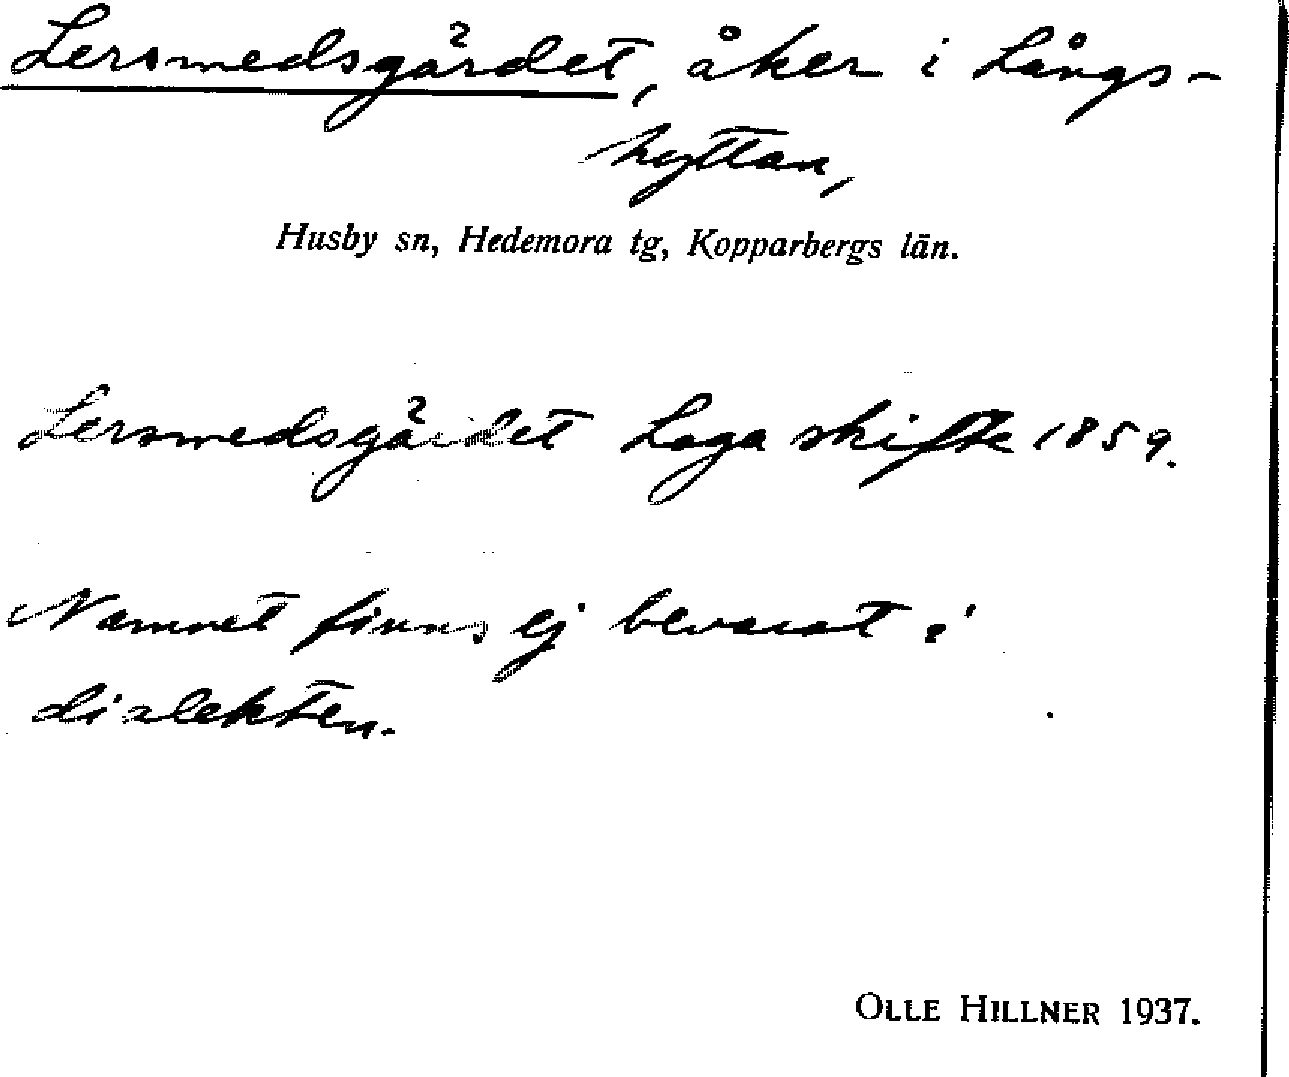 Lersmedsgärdet, åker i Långs-
hyttan,
Husby sn, Hedemora tg, Kopparbergs län.
Lersmedsgärdet Laga skifte 1859.
Namnet finns ej bevarat i
dialekten.
OLLE HILLNER 1937.